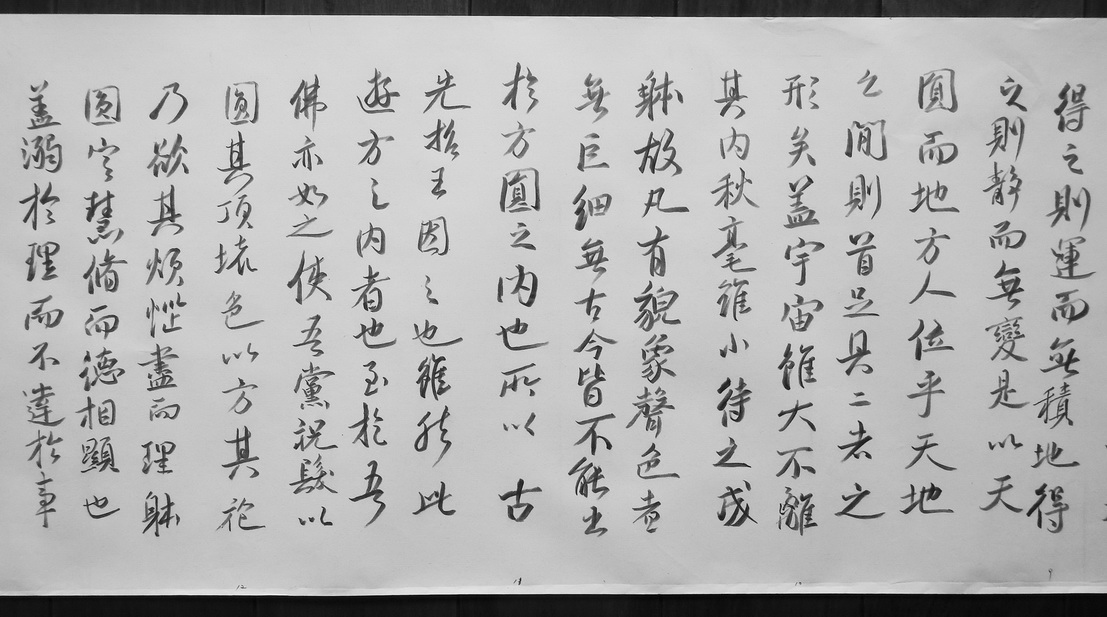 得之則運而無積地得
之則靜而無變是以天
圓而地方人位乎天地
之間則首足具二者之
形矣蓋宇宙雖大不離
其內秋毫雖小待之成
躰故凡有貌象聲色者
無巨細無古今皆不能出
於方圓之內也所以古
先哲王因之也雖然此
遊方之內者也至於吾
佛亦如之使吾黨祝髮以
圓其頂壞色以方其袍
乃欲其煩惱盡而理躰
圓定慧脩而德相顯也
蓋溺於理而不達於事